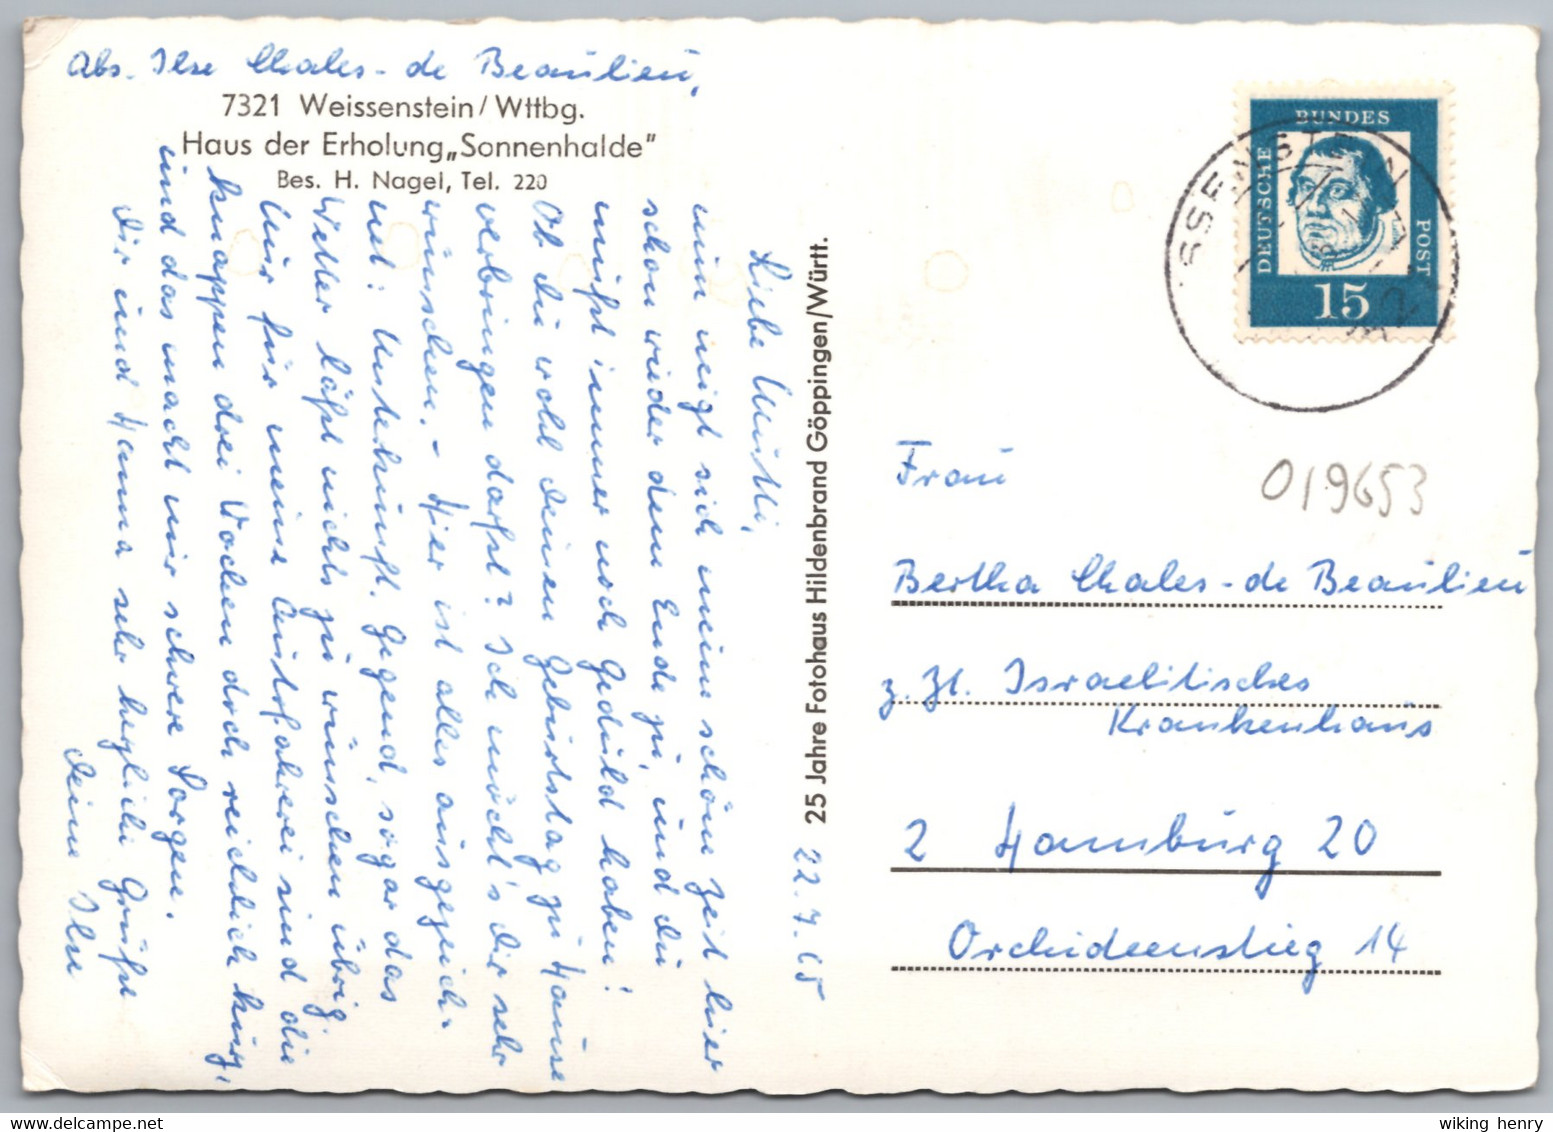 Abs. Ilse Chales-de Beaulieu,
7321 Weissenstein/Wttbg.
Haus der Erholung „Sonnenhalde"
Bes. H. Nagel, Tel. 220
22.7.65
Liebe Mutti,
nun neigt sich meine schöne Zeit hier
schon wieder dem Ende zu, und du
mußt immer noch Geduld haben!
Ob du wohl deinen Geburtstag zu Hause
verbringen darfst? Ich möcht's dir sehr
wünschen. – Hier ist alles ausgezeich-
net: Unterkunft, Gegend, sogar das
Wetter läßt nichts zu wünschen übrig.
Nur für meine Autofahrerei sind die
knappen drei Wochen doch reichlich kurz,
und das macht mir schwere Sorgen.
Dir und Hanna sehr herzliche Grüße
Deine Ilse
25 Jahre Fotohaus Hildenbrand Göppingen/Württ.
DEUTSCHE
BUNDES
POST
15
SSENSTEIN
019653
Frau
Bertha Chales-de Beaulieu
z. Zt. Israelitisches
Krankenhaus
2 Hamburg 20
Orchideenstieg 14
wiking henry